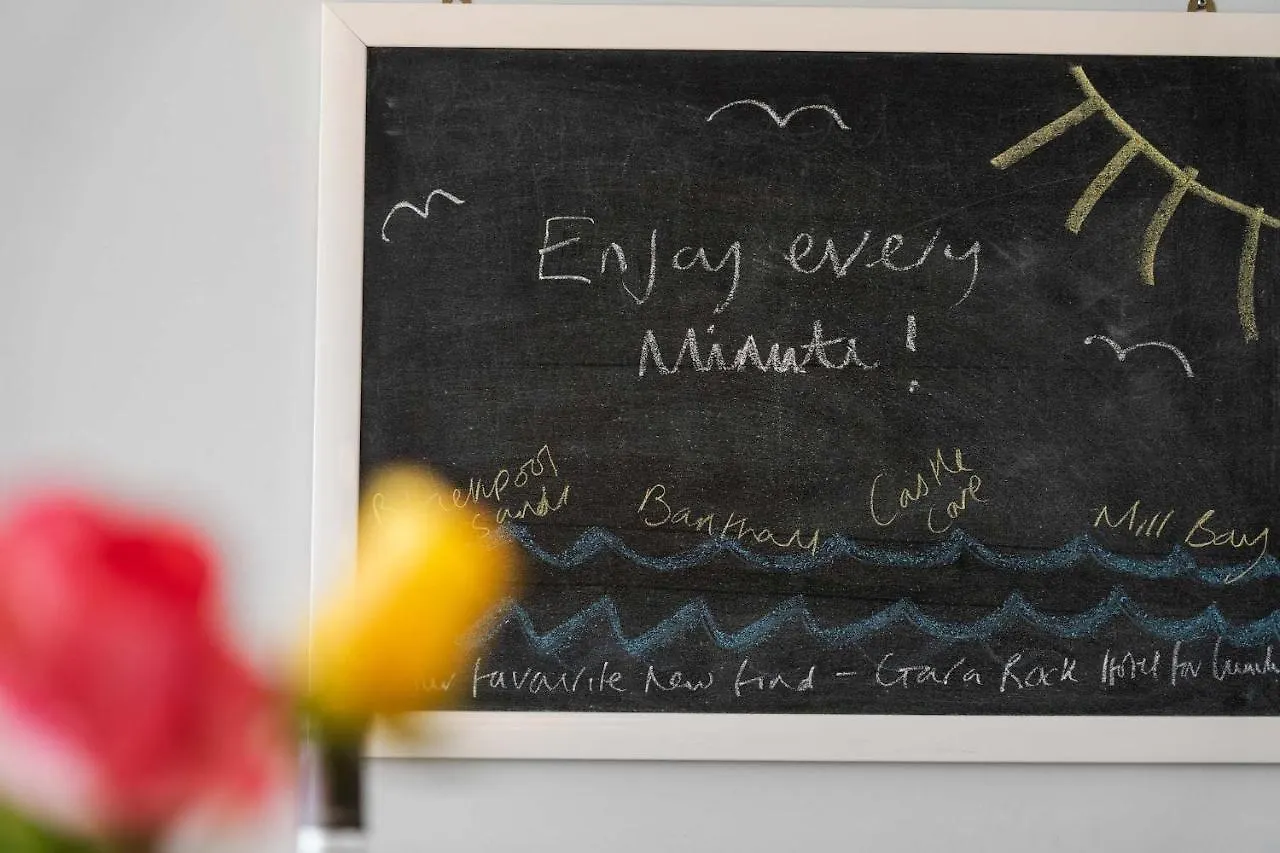 Enjoy every
Minute!
Sands
Bantham
Castle
Cove
Mill Bay
favourite new find - Gara Rock Hotel for lunch